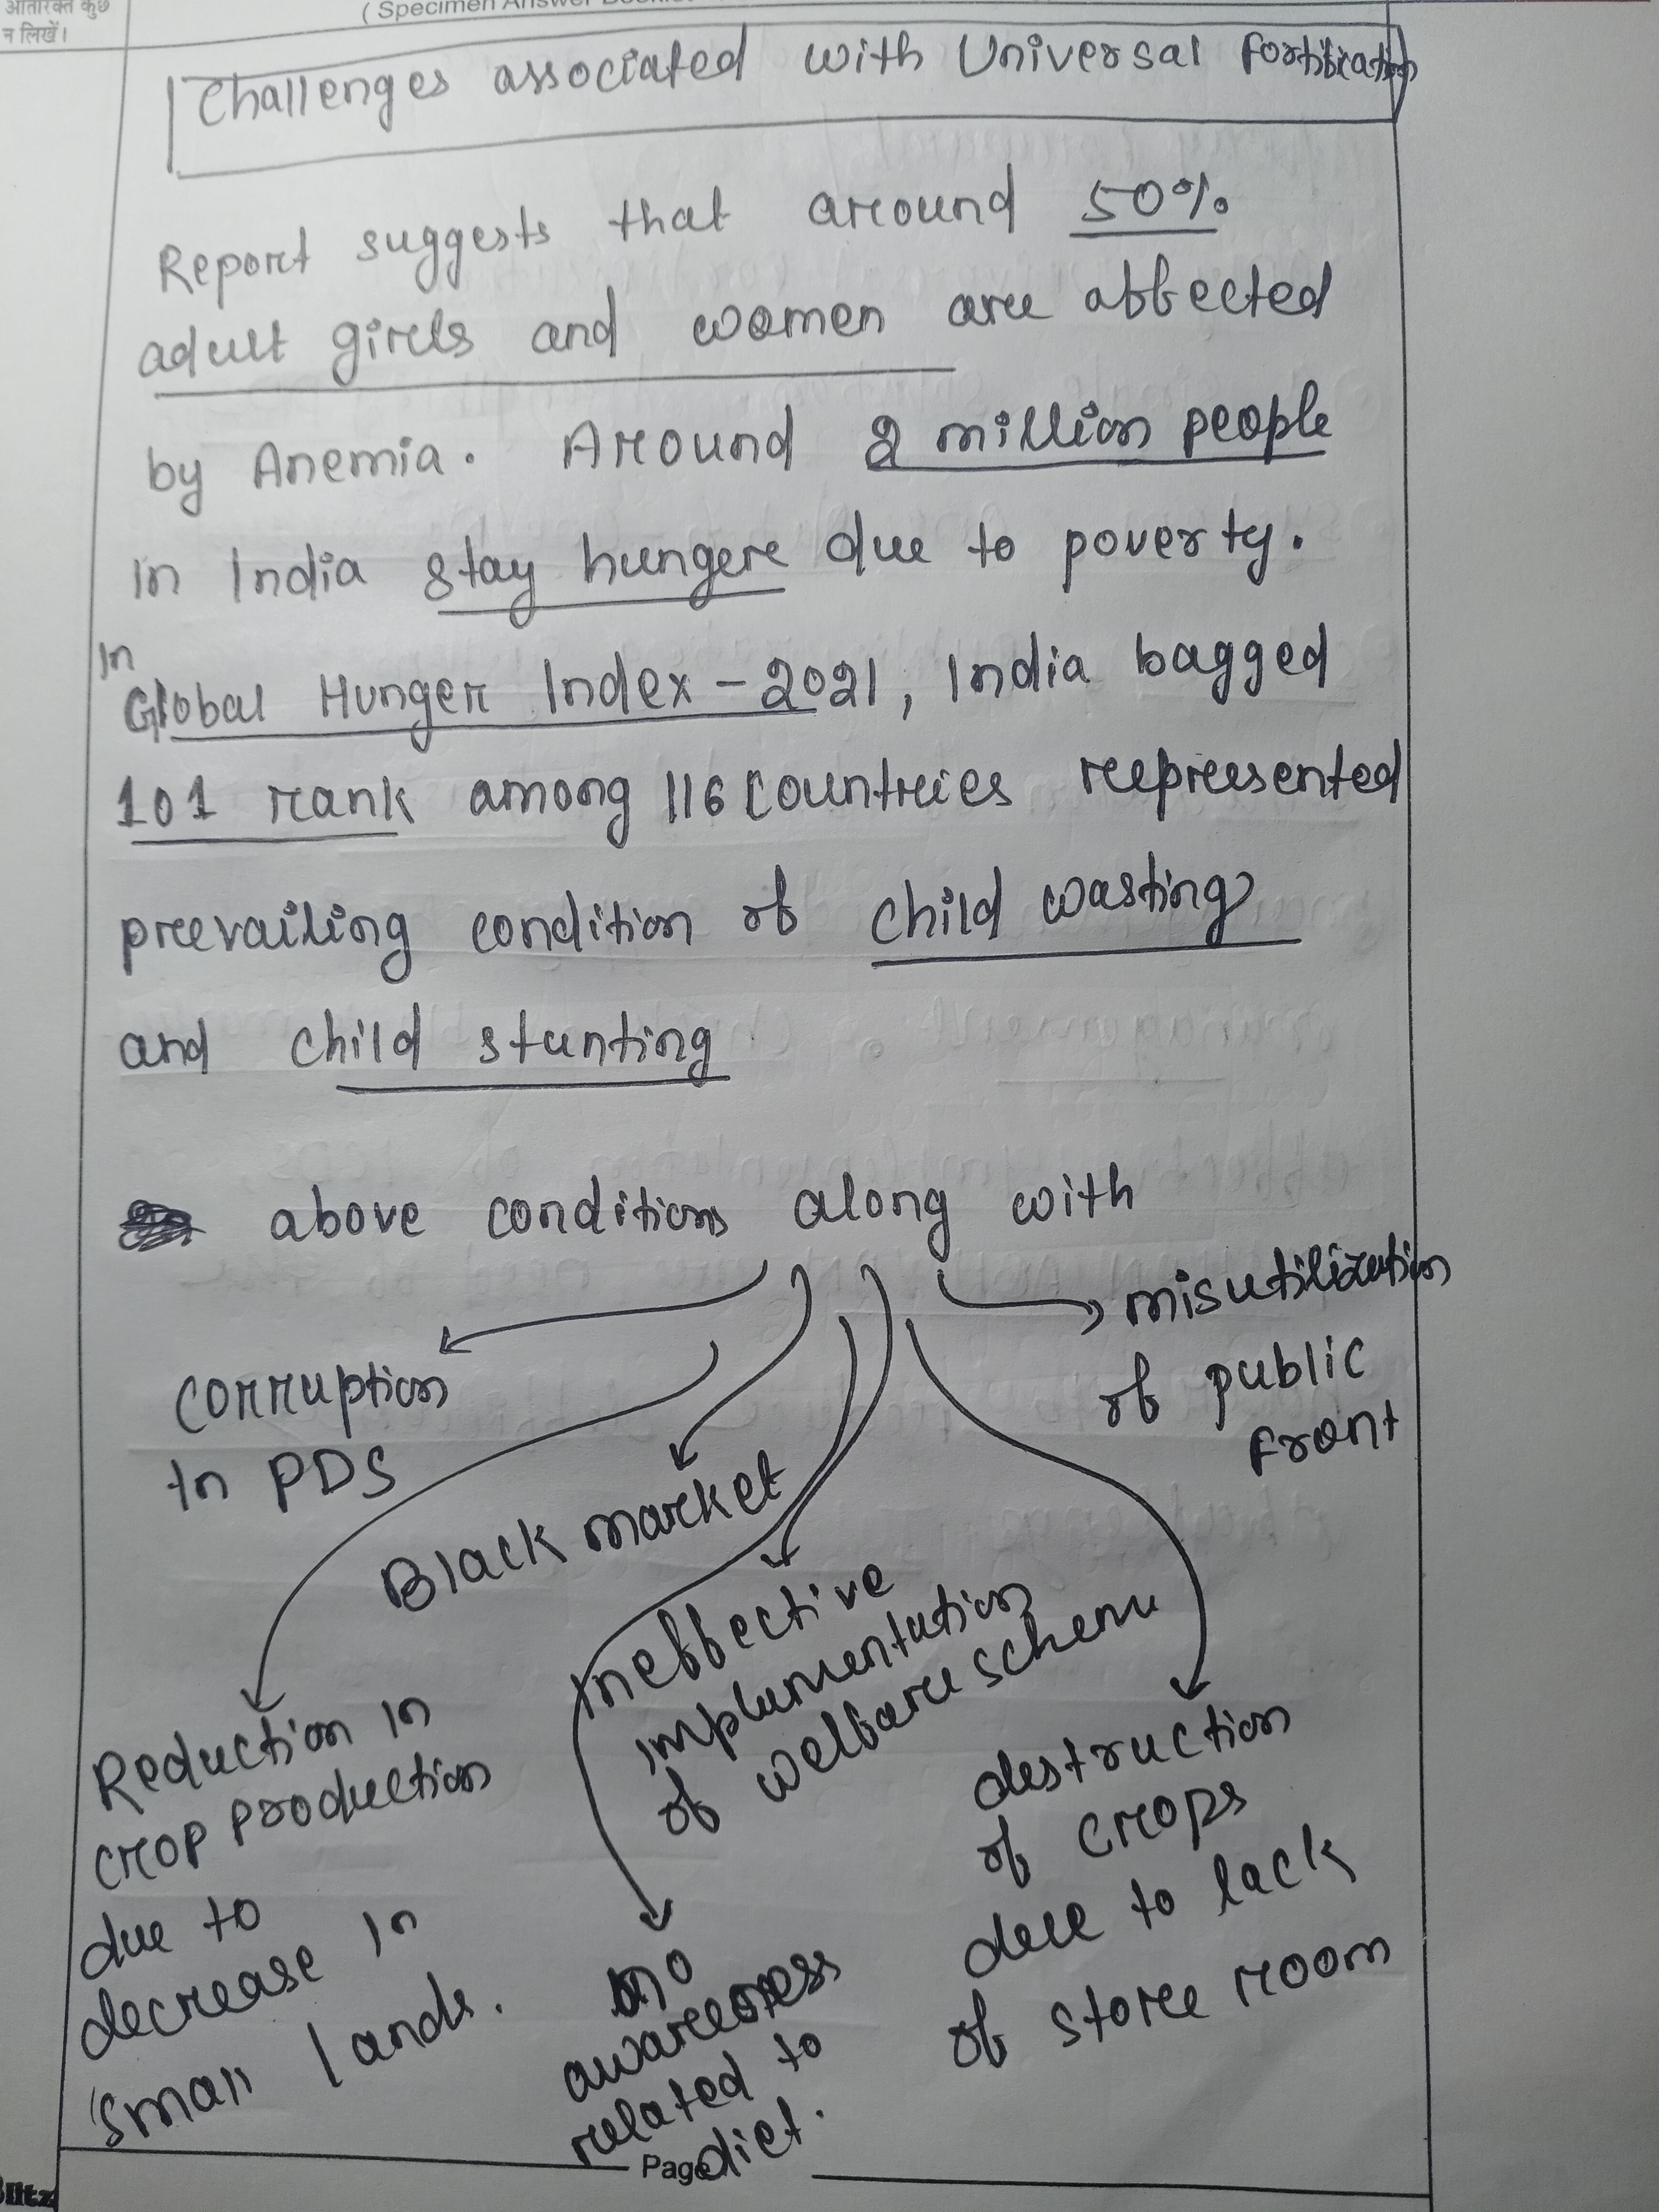 न लिखें।
Challenges associated with Universal Fortification
Report suggests that around 50%
adult girls and women are affected
by Anemia. Around 2 million people
in India stay hunger due to poverty.
In
Global Hunger Index - 2021, India bagged
101 rank among 116 countries represented
prevailing condition of child wasting
and child stunting
above conditions along with
misutilization
of public
front
Corruption
in PDS
Black market
Ineffective
implementation
of welfare scheme
Reduction in
crop production
due to
decrease in
small lands.
no
awareness
related to
diet.
destruction
of crops
due to lack
of store room
Page
Blitz